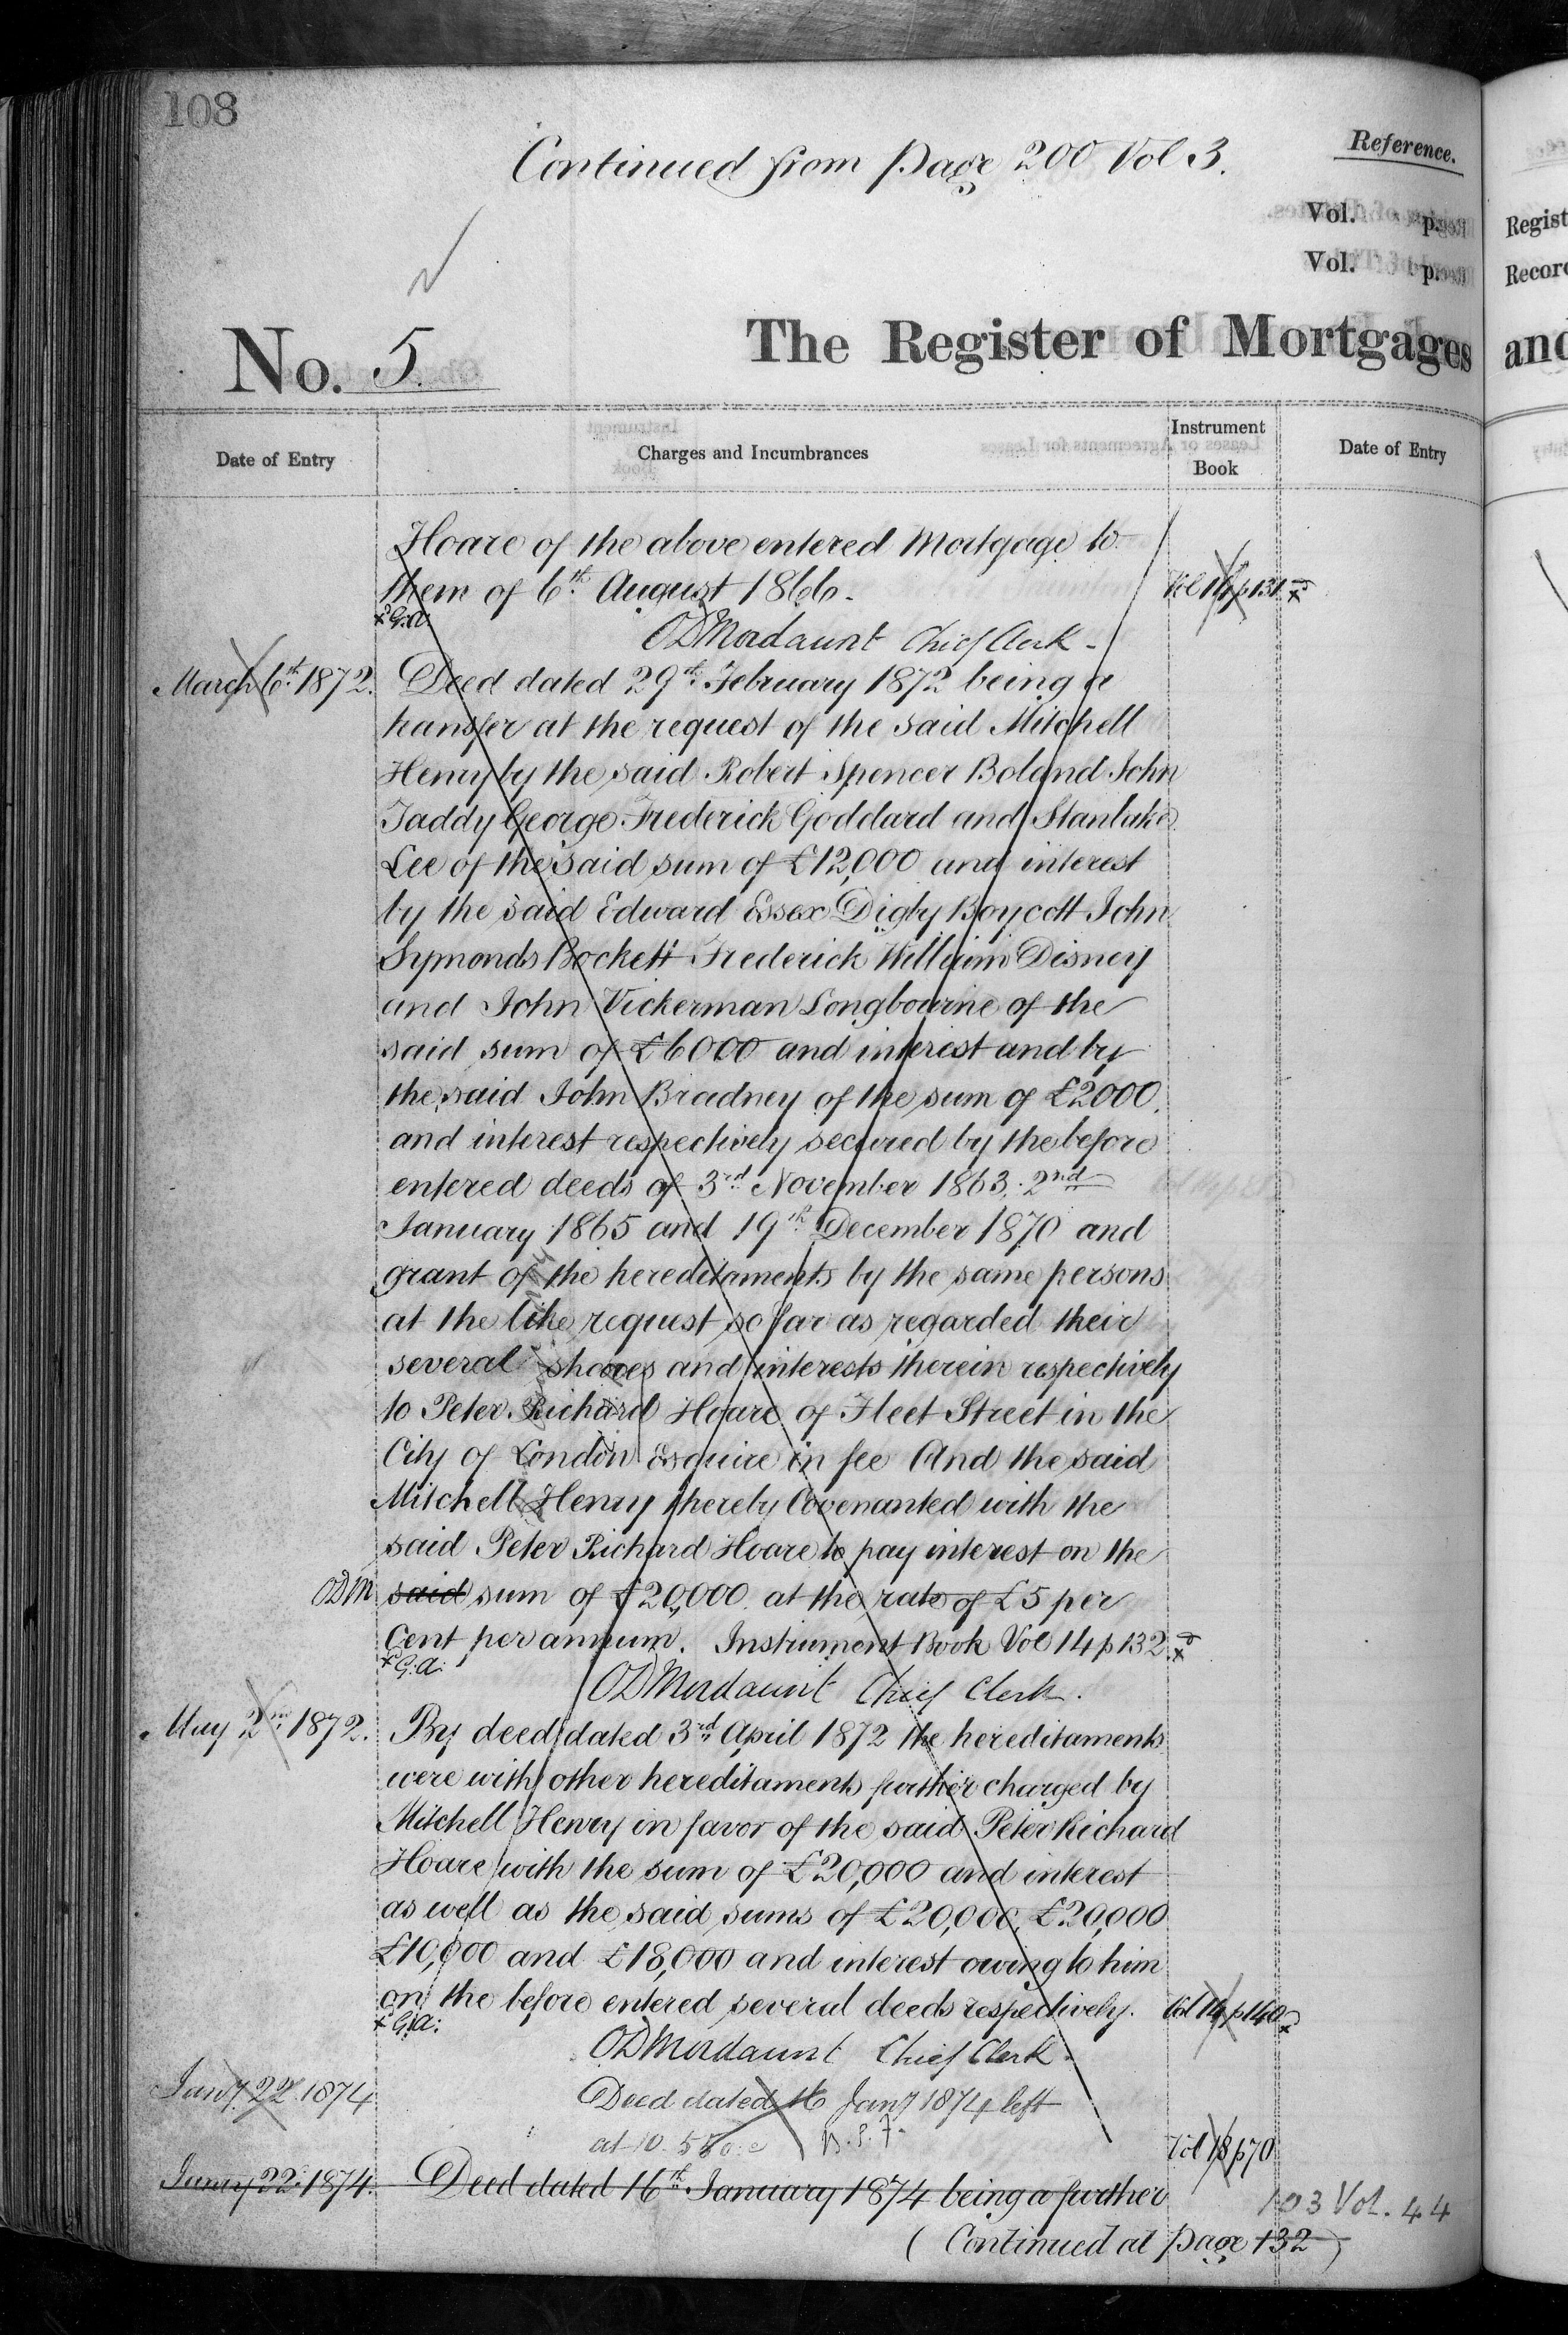 108
Continued from Page 200 Vol 3.
Reference.
Vol. p.
Vol. p.
No. 5.
The Register of Mortgages
Date of Entry
Charges and Incumbrances
Instrument
Book
Date of Entry
Regist
Record
and
Hoare of the above entered Mortgage to
them of 6th August 1866.
Vol 14 p 131
G.A.
ODMordaunt Chief Clerk.
March 6th 1872. Deed dated 29th February 1872 being a
transfer at the request of the said Mitchell
Henry by the said Robert Spencer Boland John
Taddy George Frederick Goddard and Stanlake
Lee of the said sum of £12,000 and interest
by the said Edward Essex Digby Boycott John
Symonds Bockett Frederick William Disney
and John Vickerman Longbourne of the
said sum of £6000 and interest and by
the said John Bradney of the sum of £2000
and interest respectively secured by the before
entered deeds of 3rd November 1863. 2nd
January 1865 and 19th December 1870 and
grant of the hereditaments by the same persons
at the like request so far as regarded their
several shares and interests therein respectively
to Peter Richard Hoare of Fleet Street in the
City of London Esquire in fee And the said
Mitchell Henry thereby Covenanted with the
said Peter Richard Hoare to pay interest on the
ODM said sum of £20,000 at the rate of £5 per
Cent per annum. Instrument Book Vol 14 p 132
G.A.
ODMordaunt Chief Clerk.
May 2nd 1872. By deed dated 3rd April 1872 the hereditaments
were with other hereditaments further charged by
Mitchell Henry in favor of the said Peter Richard
Hoare with the sum of £20,000 and interest
as well as the said sums of £20,000, £20,000
£10,000 and £18,000 and interest owing to him
on the before entered several deeds respectively. Vol 14 p 140
G.A.
ODMordaunt Chief Clerk.
Jany 22 1874 Deed dated 16 Jany 1874 left
at 10.5
Vol 18 p 70
Jany 22 1874. Deed dated 16th January 1874 being a further
103 Vol. 44
(Continued at page 132)